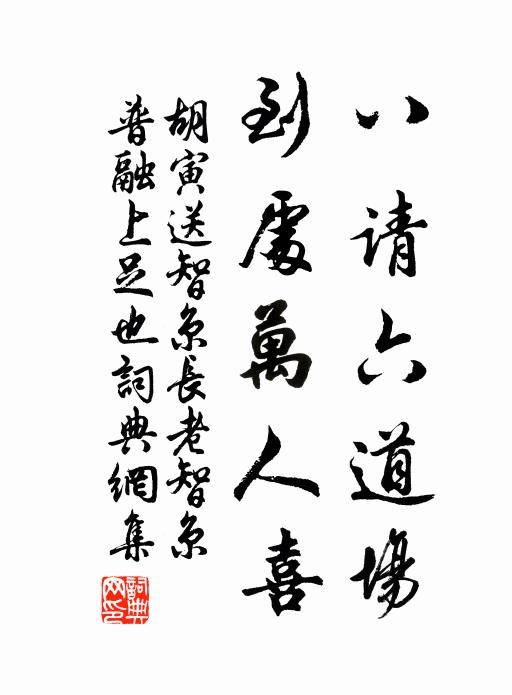 八請六道場
到處萬人喜
胡寅送智京長老智京
普融上足也詞典網集
詞典网印